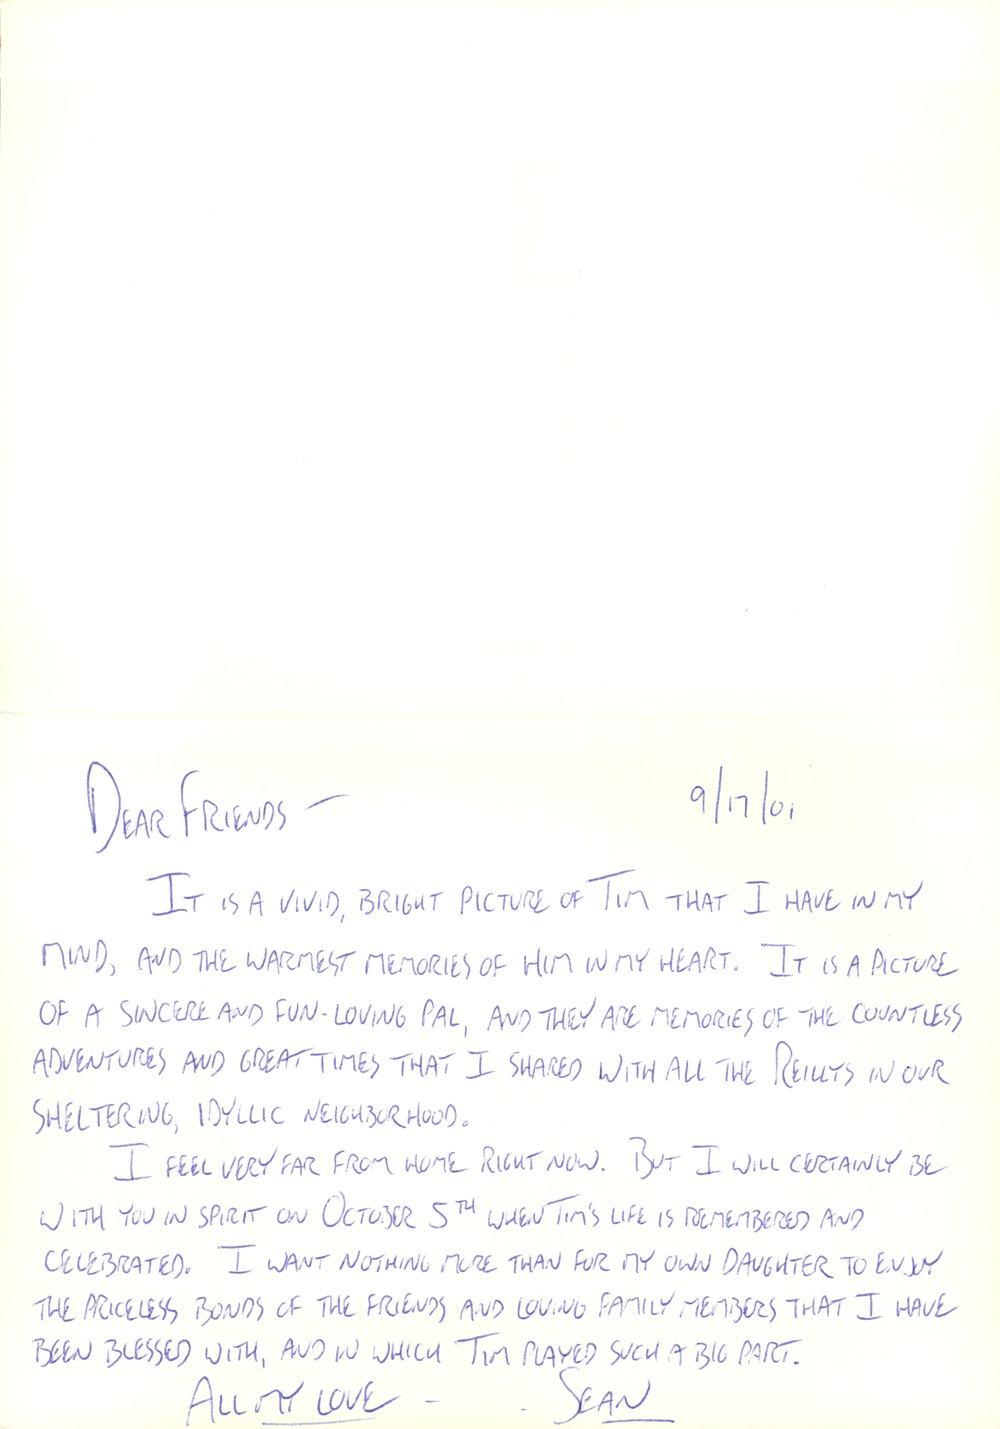 DEAR FRIENDS — 9/17/01
IT IS A VIVID, BRIGHT PICTURE OF TIM THAT I HAVE IN MY
MIND, AND THE WARMEST MEMORIES OF HIM IN MY HEART. IT IS A PICTURE
OF A SINCERE AND FUN-LOVING PAL, AND THEY ARE MEMORIES OF THE COUNTLESS
ADVENTURES AND GREAT TIMES THAT I SHARED WITH ALL THE REILLYS IN OUR
SHELTERING, IDYLLIC NEIGHBORHOOD.
I FEEL VERY FAR FROM HOME RIGHT NOW. BUT I WILL CERTAINLY BE
WITH YOU IN SPIRIT ON OCTOBER 5TH WHEN TIM'S LIFE IS REMEMBERED AND
CELEBRATED. I WANT NOTHING MORE THAN FOR MY OWN DAUGHTER TO ENJOY
THE PRICELESS BONDS OF THE FRIENDS AND LOVING FAMILY MEMBERS THAT I HAVE
BEEN BLESSED WITH, AND IN WHICH TIM PLAYED SUCH A BIG PART.
ALL MY LOVE - - SEAN